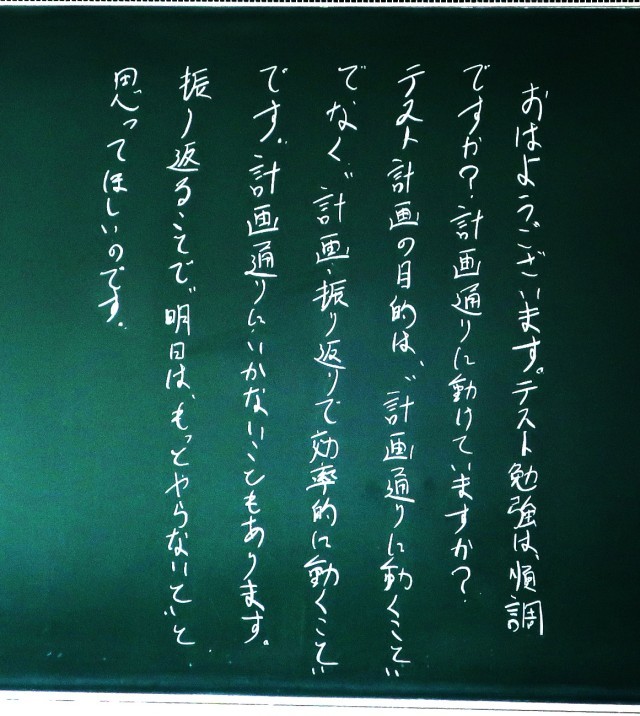 おはようございます。テスト勉強は、順調
ですか?計画通りに動けていますか?
テスト計画の目的は、"計画通りに動くこと"
でなく、"計画・振り返りで効率的に動くこと"
です。計画通りにいかないこともあります。
振り返ることで"明日は、もっとやらないと"と
思ってほしいのです。